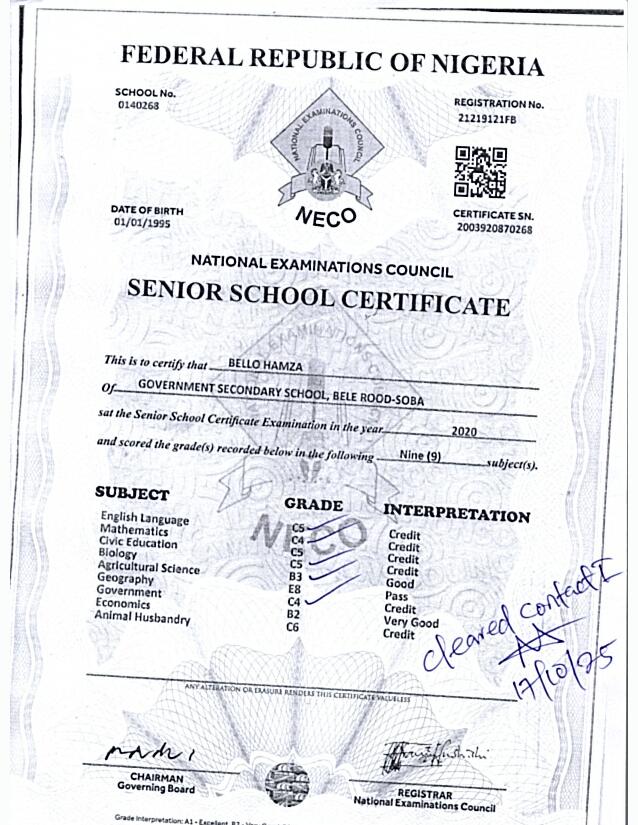 FEDERAL REPUBLIC OF NIGERIA
SCHOOL No.
0140268
REGISTRATION No.
21219121FB
NATIONAL EXAMINATIONS COUNCIL
NECO
DATE OF BIRTH
01/01/1995
CERTIFICATE SN.
2003920870268
NATIONAL EXAMINATIONS COUNCIL
SENIOR SCHOOL CERTIFICATE
This is to certify that BELLO HAMZA
Of GOVERNMENT SECONDARY SCHOOL, BELE ROOD-SOBA
sat the Senior School Certificate Examination in the year 2020
and scored the grade(s) recorded below in the following Nine (9) subject(s).
SUBJECT GRADE INTERPRETATION
English Language C5 Credit
Mathematics C4 Credit
Civic Education C5 Credit
Biology C5 Credit
Agricultural Science B3 Good
Geography E8 Pass
Government C4 Credit
Economics B2 Very Good
Animal Husbandry C6 Credit
cleared contact I
17/10/25
ANY ALTERATION OR ERASURE RENDERS THIS CERTIFICATE VALUELESS
CHAIRMAN
Governing Board
REGISTRAR
National Examinations Council
Grade Interpretation: A1 - Excellent, B2 - Very